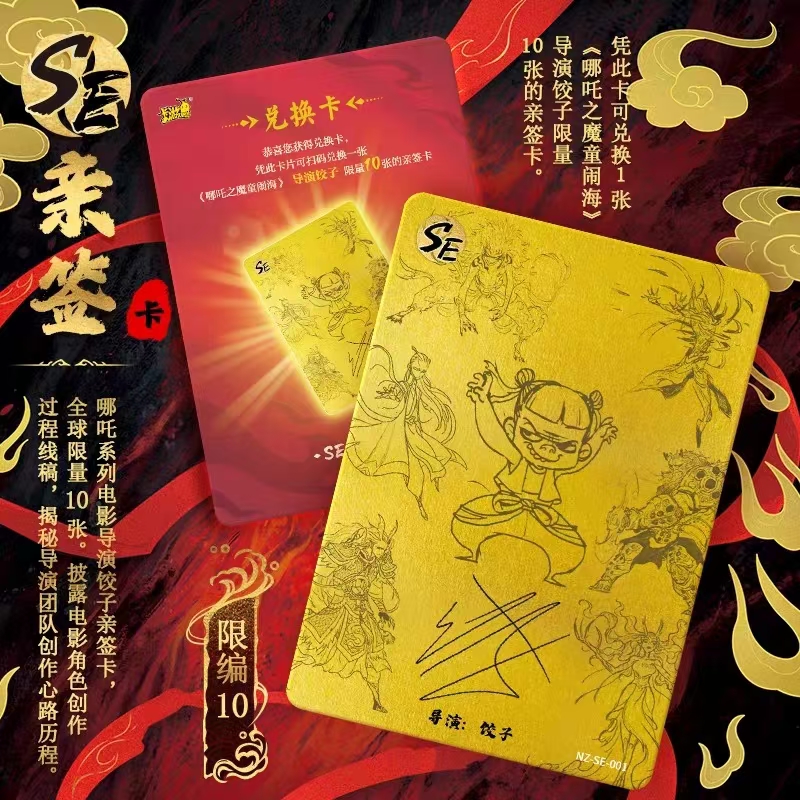 SE
亲签
卡
哪吒系列电影导演饺子亲签卡，
全球限量10张。披露电影角色创作
过程线稿，揭秘导演团队创作心路历程。
限编10
兑换卡
恭喜您获得兑换卡，
凭此卡片可扫码兑换一张
《哪吒之魔童闹海》 导演饺子 限量10张的亲签卡
SE
·SE
凭此卡可兑换1张
《哪吒之魔童闹海》
导演饺子限量
10张的亲签卡。
SE
导演：饺子
NZ-SE-001